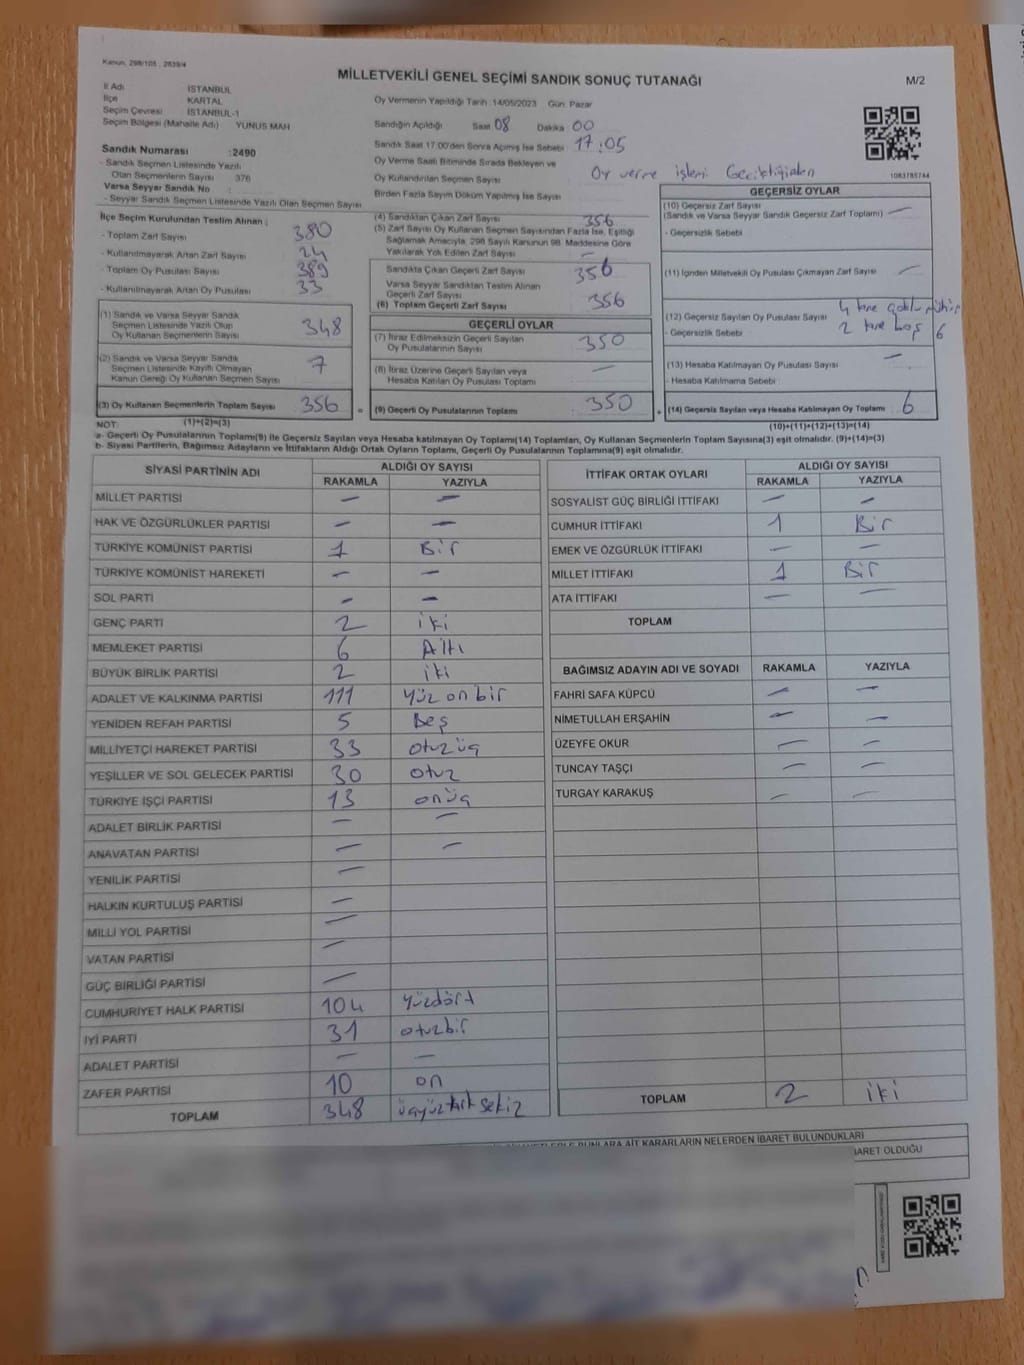 Kanun: 298/105 , 2839/4
MİLLETVEKİLİ GENEL SEÇİMİ SANDIK SONUÇ TUTANAĞI
M/2
İl Adı İSTANBUL
İlçe KARTAL
Seçim Çevresi İSTANBUL-1
Seçim Bölgesi (Mahalle Adı) YUNUS MAH
Sandık Numarası :2490
- Sandık Seçmen Listesinde Yazılı
Olan Seçmenlerin Sayısı 376
Varsa Seyyar Sandık No :
- Seyyar Seçmen Listesinde Yazılı Olan Seçmen Sayısı
Oy Vermenin Yapıldığı Tarih :14/05/2023 Gün: Pazar
Sandığın Açıldığı Saat 08 Dakika 00
Sandık Saat 17:00'den Sonra Açılmış İse Sebebi 17:05
Oy Verme Saati Bitiminde Sırada Bekleyen ve
Oy Kullandırılan Seçmen Sayısı
Oy verme işlemi Geciktiğinden
Birden Fazla Sayım Döküm Yapılmış İse Sayısı
1083785744
İlçe Seçim Kurulundan Teslim Alınan ;
- Toplam Zarf Sayısı 380
- Kullanılmayarak Artan Zarf Sayısı 24
- Toplam Oy Pusulası Sayısı 389
- Kullanılmayarak Artan Oy Pusulası 33
(1) Sandık ve Varsa Seyyar Sandık
Seçmen Listesinde Yazılı Olup
Oy Kullanan Seçmenlerin Sayısı 348
(2) Sandık ve Varsa Seyyar Sandık
Seçmen Listesinde Kayıtlı Olmayan
Kanun Gereği Oy Kullanan Seçmen Sayısı 7
(3) Oy Kullanan Seçmenlerin Toplam Sayısı 356
(1)+(2)=(3)
(4) Sandıktan Çıkan Zarf Sayısı 356
(5) Zarf Sayısı Oy Kullanan Seçmen Sayısından Fazla İse, Eşitliği
Sağlamak Amacıyla, 298 Sayılı Kanunun 98. Maddesine Göre
Yakılarak Yok Edilen Zarf Sayısı —
Sandıkta Çıkan Geçerli Zarf Sayısı 356
Varsa Seyyar Sandıktan Teslim Alınan
Geçerli Zarf Sayısı
(6) Toplam Geçerli Zarf Sayısı 356
GEÇERLİ OYLAR
(7) İtiraz Edilmeksizin Geçerli Sayılan
Oy Pusulalarının Sayısı 350
(8) İtiraz Üzerine Geçerli Sayılan veya
Hesaba Katılan Oy Pusulası Toplamı —
= (9) Geçerli Oy Pusulalarının Toplamı 350
GEÇERSİZ OYLAR
(10) Geçersiz Zarf Sayısı
(Sandık ve Varsa Seyyar Sandık Geçersiz Zarf Toplamı) —
- Geçersizlik Sebebi
(11) İçinden Milletvekili Oy Pusulası Çıkmayan Zarf Sayısı —
(12) Geçersiz Sayılan Oy Pusulası Sayısı 4 tane çoklu mühür
- Geçersizlik Sebebi 2 tane boş 6
(13) Hesaba Katılmayan Oy Pusulası Sayısı —
- Hesaba Katılmama Sebebi :
+ (14) Geçersiz Sayılan veya Hesaba Katılmayan Oy Toplamı 6
(10)+(11)+(12)+(13)=(14)
NOT:
a- Geçerli Oy Pusulalarının Toplamı(9) ile Geçersiz Sayılan veya Hesaba katılmayan Oy Toplamı(14) Toplamları, Oy Kullanan Seçmenlerin Toplam Sayısına(3) eşit olmalıdır. (9)+(14)=(3)
b- Siyasi Partilerin, Bağımsız Adayların ve İttifakların Aldığı Ortak Oyların Toplamı, Geçerli Oy Pusulalarının Toplamına(9) eşit olmalıdır.
SİYASİ PARTİNİN ADI ALDIĞI OY SAYISI
RAKAMLA YAZIYLA
MİLLET PARTİSİ — —
HAK VE ÖZGÜRLÜKLER PARTİSİ — —
TÜRKİYE KOMÜNİST PARTİSİ 1 Bir
TÜRKİYE KOMÜNİST HAREKETİ — —
SOL PARTİ — —
GENÇ PARTİ 2 iki
MEMLEKET PARTİSİ 6 Altı
BÜYÜK BİRLİK PARTİSİ 2 iki
ADALET VE KALKINMA PARTİSİ 111 Yüz on bir
YENİDEN REFAH PARTİSİ 5 Beş
MİLLİYETÇİ HAREKET PARTİSİ 33 otuzüç
YEŞİLLER VE SOL GELECEK PARTİSİ 30 otuz
TÜRKİYE İŞÇİ PARTİSİ 13 onüç
ADALET BİRLİK PARTİSİ — —
ANAVATAN PARTİSİ — —
YENİLİK PARTİSİ —
HALKIN KURTULUŞ PARTİSİ —
MİLLİ YOL PARTİSİ —
VATAN PARTİSİ —
GÜÇ BİRLİĞİ PARTİSİ —
CUMHURİYET HALK PARTİSİ 104 Yüzdört
İYİ PARTİ 31 otuzbir
ADALET PARTİSİ — —
ZAFER PARTİSİ 10 on
TOPLAM 348 üçyüzkırk sekiz
İTTİFAK ORTAK OYLARI ALDIĞI OY SAYISI
RAKAMLA YAZIYLA
SOSYALİST GÜÇ BİRLİĞİ İTTİFAKI — —
CUMHUR İTTİFAKI 1 Bir
EMEK VE ÖZGÜRLÜK İTTİFAKI — —
MİLLET İTTİFAKI 1 Bir
ATA İTTİFAKI — —
TOPLAM
BAĞIMSIZ ADAYIN ADI VE SOYADI RAKAMLA YAZIYLA
FAHRİ SAFA KÜPCÜ — —
NİMETULLAH ERŞAHİN — —
ÜZEYFE OKUR — —
TUNCAY TAŞÇI — —
TURGAY KARAKUŞ — —
TOPLAM 2 iki
BUNLARA AİT KARARLARIN NELERDEN İBARET BULUNDUKLARI
İBARET OLDUĞU